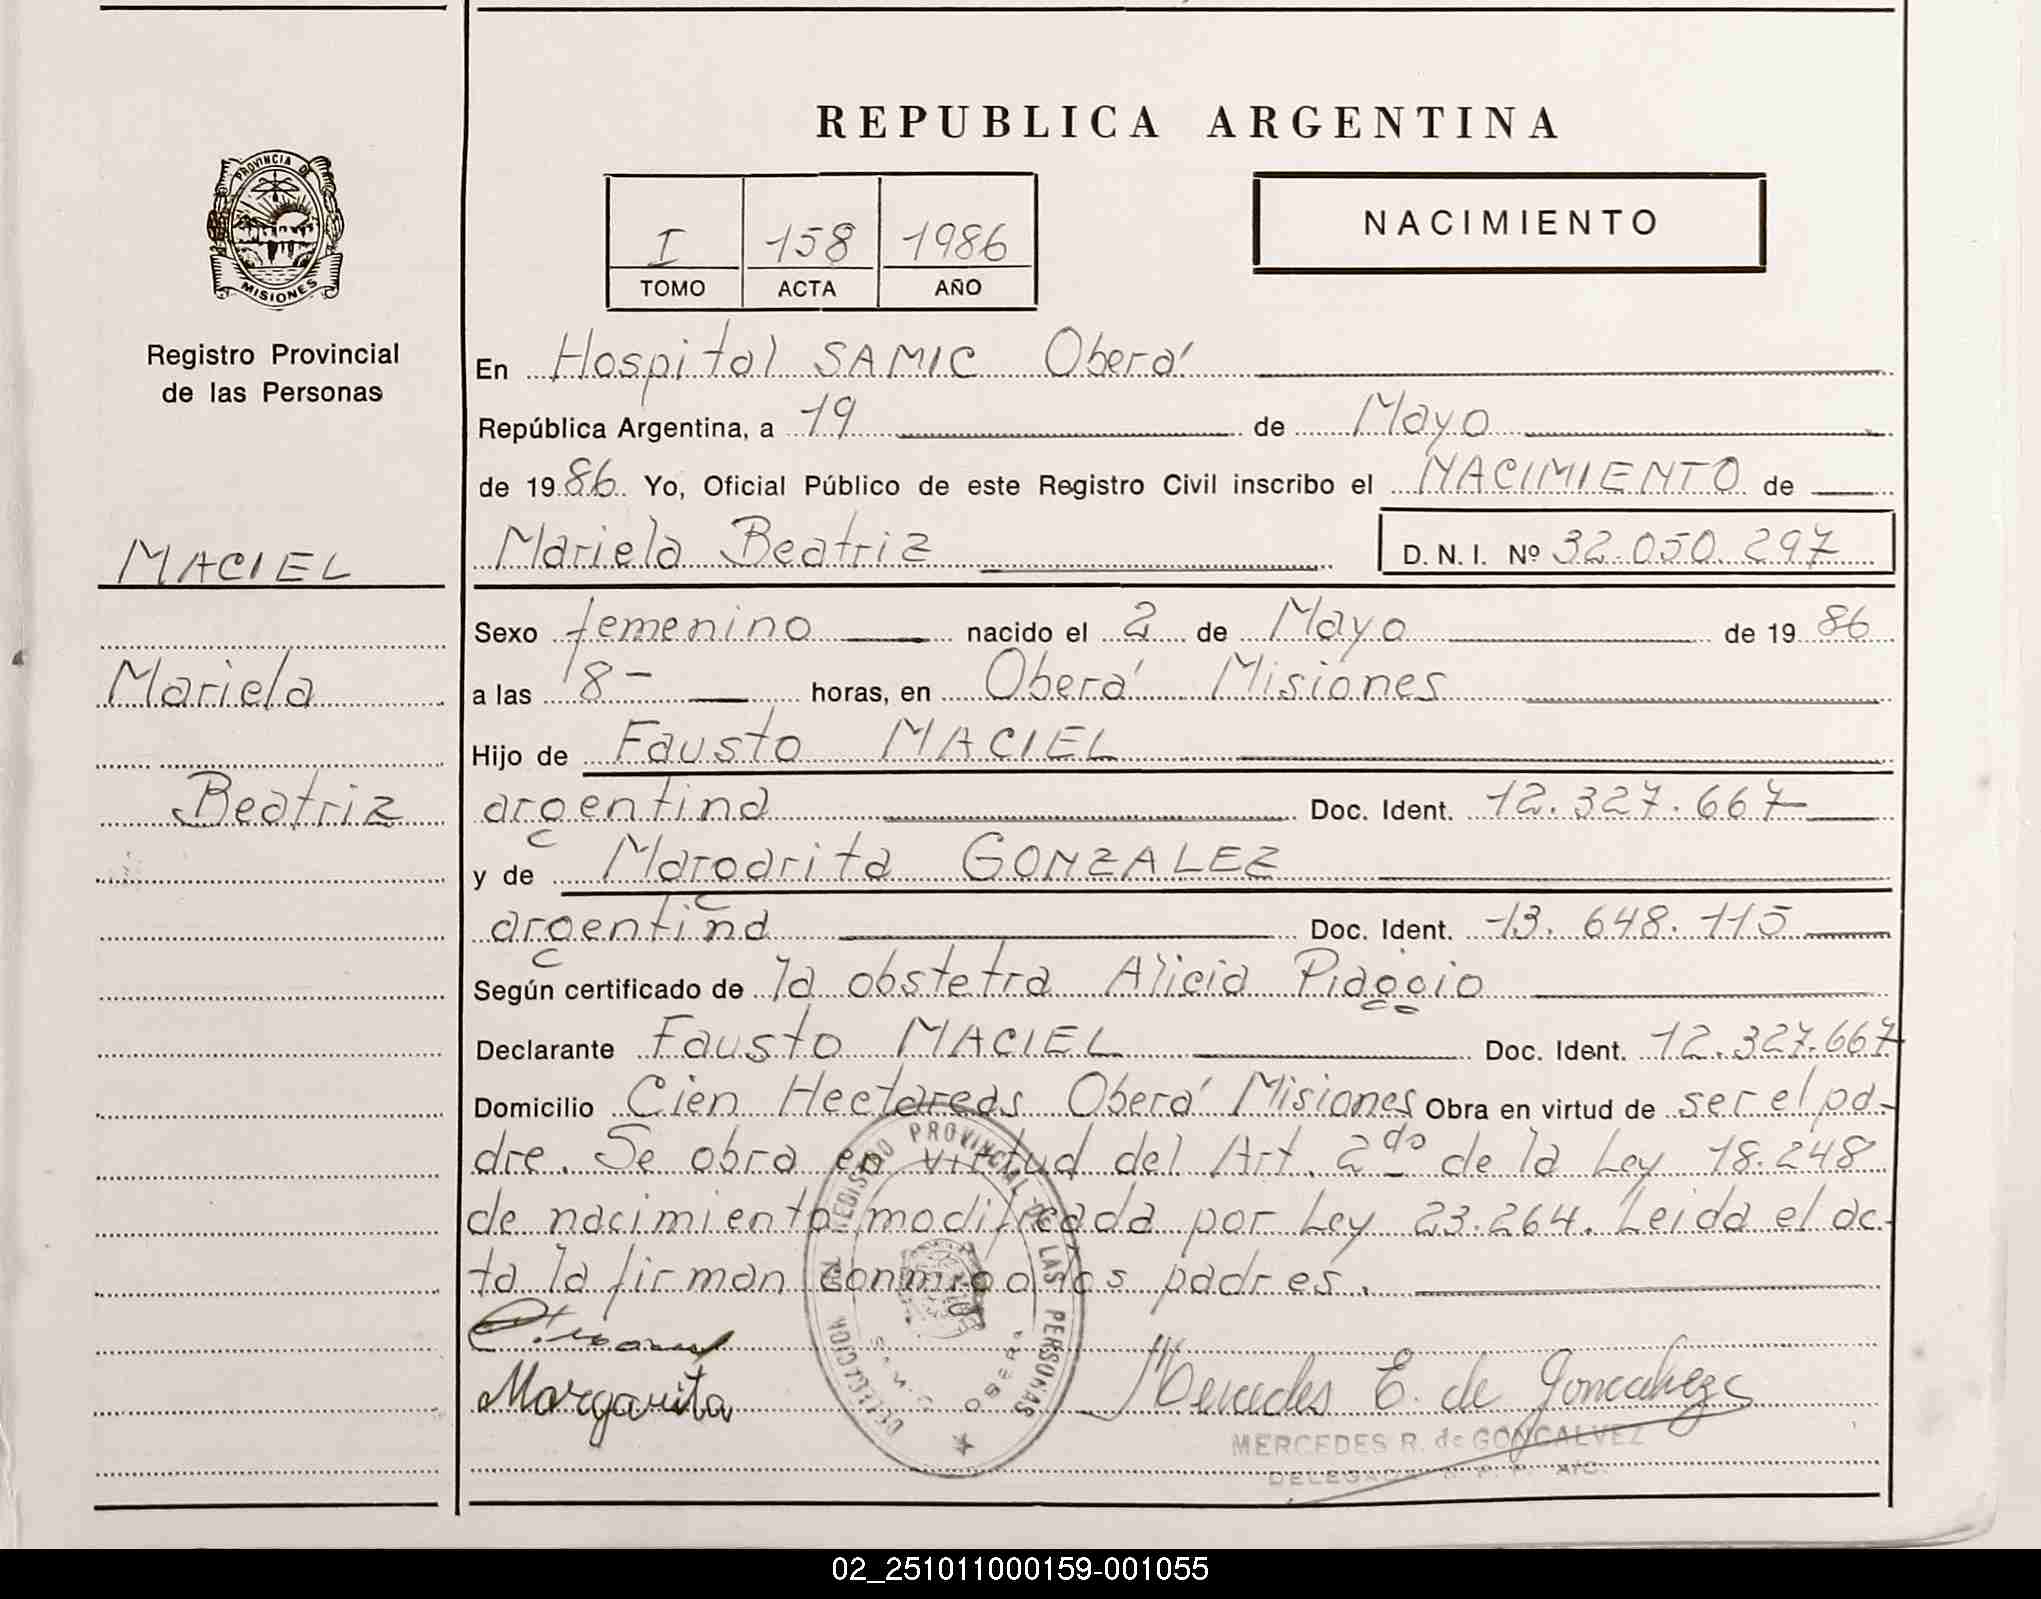 REPUBLICA ARGENTINA
PROVINCIA DE
MISIONES
Registro Provincial
de las Personas
I 158 1986
TOMO ACTA AÑO
NACIMIENTO
En Hospital SAMIC Oberá
República Argentina, a 19 de Mayo
de 1986 Yo, Oficial Público de este Registro Civil inscribo el NACIMIENTO de
MACIEL
Mariela Beatriz D. N. I. Nº 32.050.297
Sexo femenino nacido el 2 de Mayo de 1986
Mariela
a las 8- horas, en Oberá Misiones
Hijo de Fausto MACIEL
Beatriz
argentina Doc. Ident. 12.327.667
y de Margarita GONZALEZ
argentina Doc. Ident. 13.648.115
Según certificado de la obstetra Alicia Piaggio
Declarante Fausto MACIEL Doc. Ident. 12.327.667
Domicilio Cien Hectareas Oberá Misiones Obra en virtud de ser el pa-
dre. Se obra en virtud del Art. 2do de la Ley 18.248
de nacimiento modificada por Ley 23.264. Leida el ac-
ta la firman conmigo los padres.
DELEGACION REGISTRO PROVINCIAL DE LAS PERSONAS
OBERA
Margarita
Mercedes E. de Goncalvez
MERCEDES R. de GONCALVEZ
02_251011000159-001055